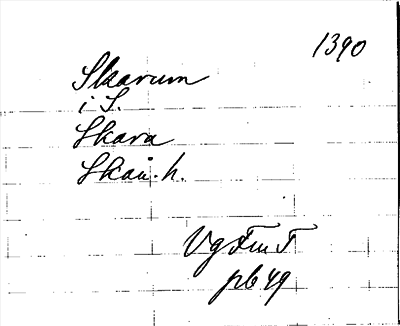 1390
Skarum
i S.
Skara
Skån. h.
Vg Fm T